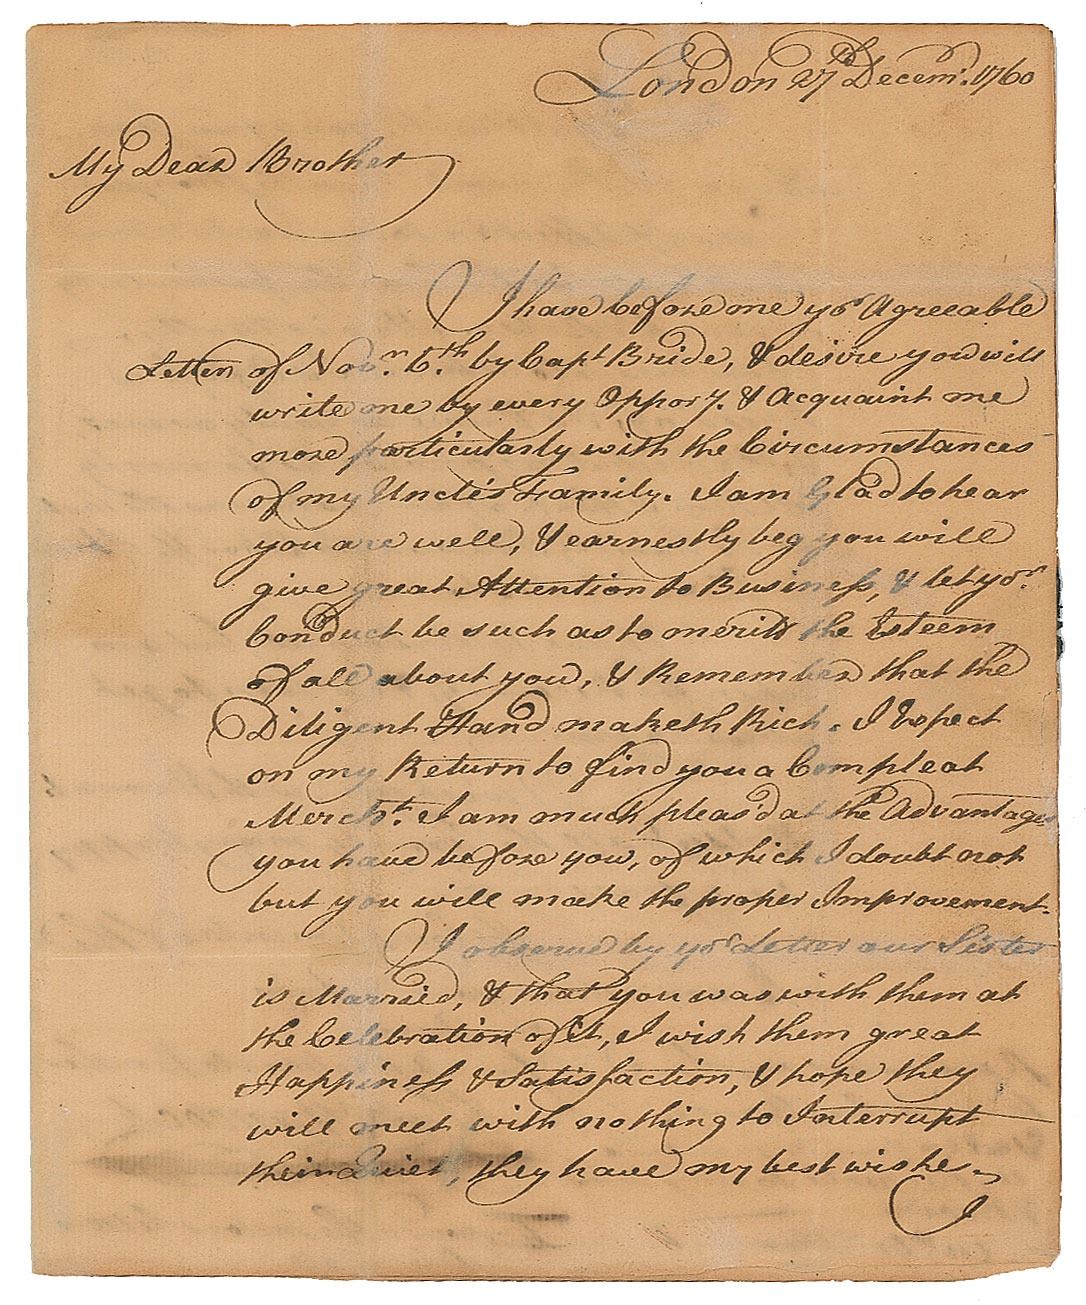 London 27th Decem: 1760
My Dear Brother
I have before me yor Agreeable
Letter of Novr. 6th. by Capt Bride, & desire you will
write me by every Oppory. & Acquaint me
more particularly with the Circumstances
of my Uncle's Family. I am Glad to hear
you are well, & earnestly beg you will
give great Attention to Business, & let yor
Conduct be such as to merit the Esteem
of all about you, & Remember that the
Diligent Hand maketh Rich. I Expect
on my Return to find you a Compleat
Mercht. I am much pleas'd at the Advantages
you have before you, of which I doubt not
but you will make the proper Improvement.
I observe by yor Letter our Sister
is Married, & that you was with them at
the Celebration of it, I wish them great
Happiness & Satisfaction, & hope they
will meet with nothing to Interrupt
their Quiet, they have my best wishes
I